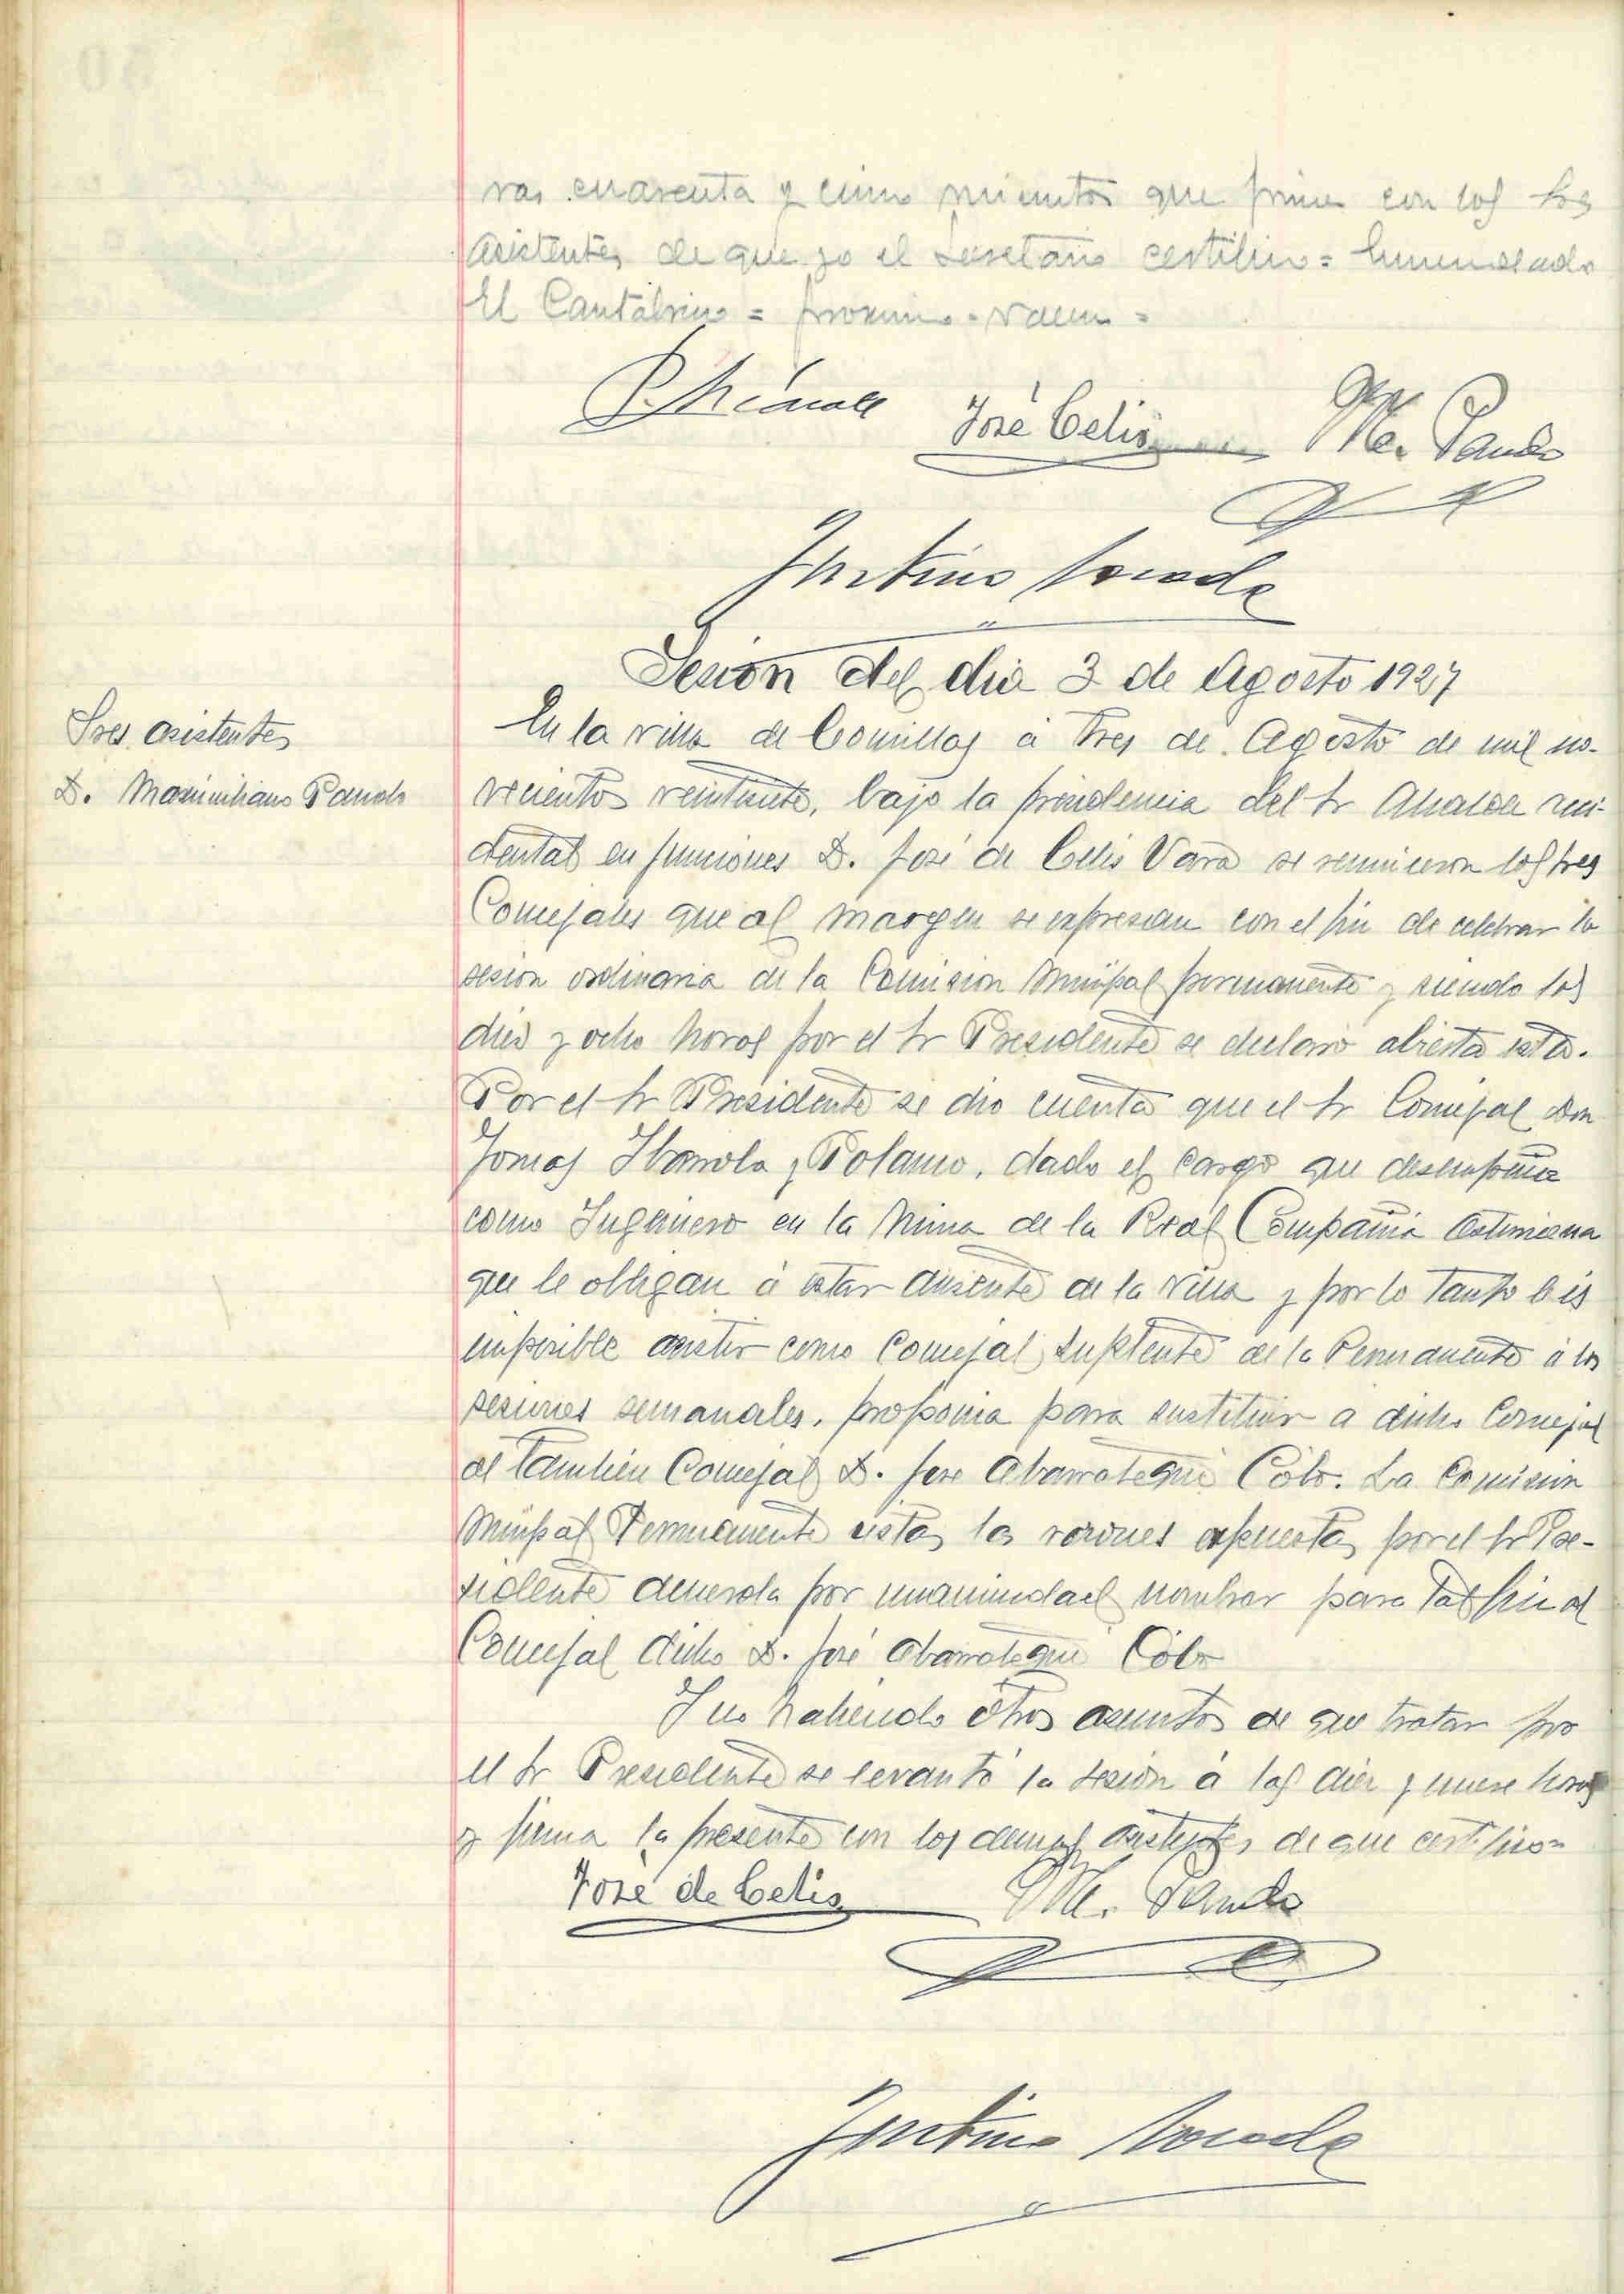 ras cuarenta y cinco minutos que firma con los Sres
asistentes de que yo el Secretario certifico = Enmendado
El Cantábrico = proximo = valen =
José Celis
M. Pando
Sesion del dia 3 de Agosto 1927
Sres. asistentes
D. Maximiliano Pando
En la villa de Comillas á tres de Agosto de mil no-
vecientos veintisiete, bajo la presidencia del Sr Alcalde acci-
dental en funciones D. José de Celis Vara se reunieron los Sres
Concejales que al margen se expresan con el fin de celebrar la
sesion ordinaria de la Comision Municipal permanente y siendo las
diez y ocho horas por el Sr Presidente se declaró abierta esta.
Por el Sr Presidente se dio cuenta que el Sr Concejal Don
Tomas Ibarrola y Polanco, dado el cargo que desempeña
como Ingeniero en la Mina de la Real Compañia Asturiana
que le obligan á estar ausente de la villa y por lo tanto le es
imposible asistir como Concejal Suplente de la Permanente á las
sesiones semanales, proponia para sustituir a dicho Concejal
al tambien Concejal D. Jose Abarrategui Cobo. La Comision
Municipal Permanente vistas las razones expuestas por el Sr Pre-
sidente acuerda por unanimidad nombrar para tal fin al
Concejal dicho D. José Abarrategui Cobo
Y no habiendo otros asuntos de que tratar por
el Sr Presidente se levantó la sesion á las diez y nueve horas
y firma la presente con los demas asistentes de que certifico=
José de Celis
M. Pando